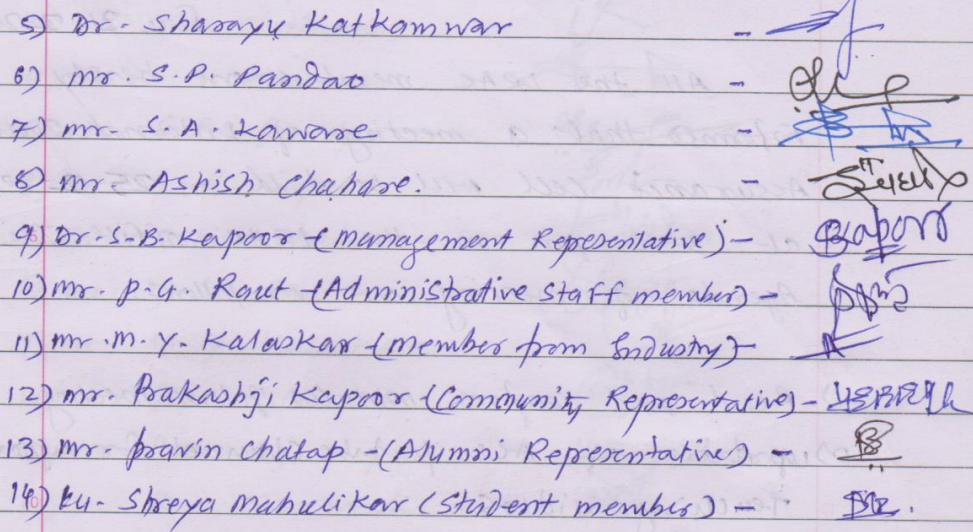 5) Dr. Sharayu Katkamwar -
6) mr. S. P. Pandao -
7) mr. S. A. Kaware -
8) mr. Ashish Chahare. -
9) Dr. S. B. Kapoor - (Management Representative) -
10) mr. P. G. Raut - (Administrative Staff member) -
11) mr. M. Y. Kalaskar - (member from Industry) -
12) mr. Prakashji Kapoor - (Community Representative) -
13) mr. pravin Chatap - (Alumni Representative) -
14) Ku. Shreya Mahulikar (Student member) -